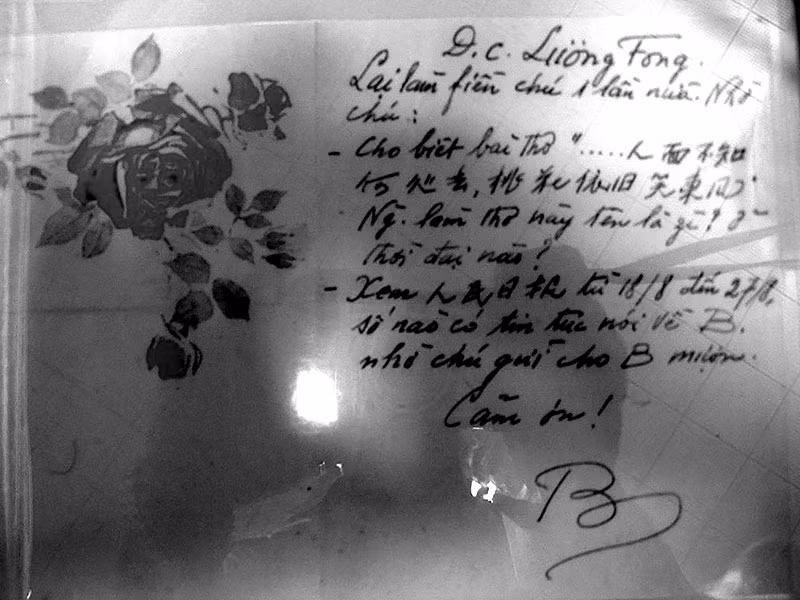 Đ.C. Lương Fong.
Lại làm fiền chú 1 lần nữa. Nhờ
chú:
- Cho biết bài thơ "......人面不知
何处去, 桃花依旧笑東风"
Ng. làm thơ này tên là gì? Ở
thời đại nào?
- Xem 人民日报 từ 18/8 đến 27/8,
số nào có tin tức nói về B.
nhờ chú gửi cho B mượn.
Cảm ơn!
B